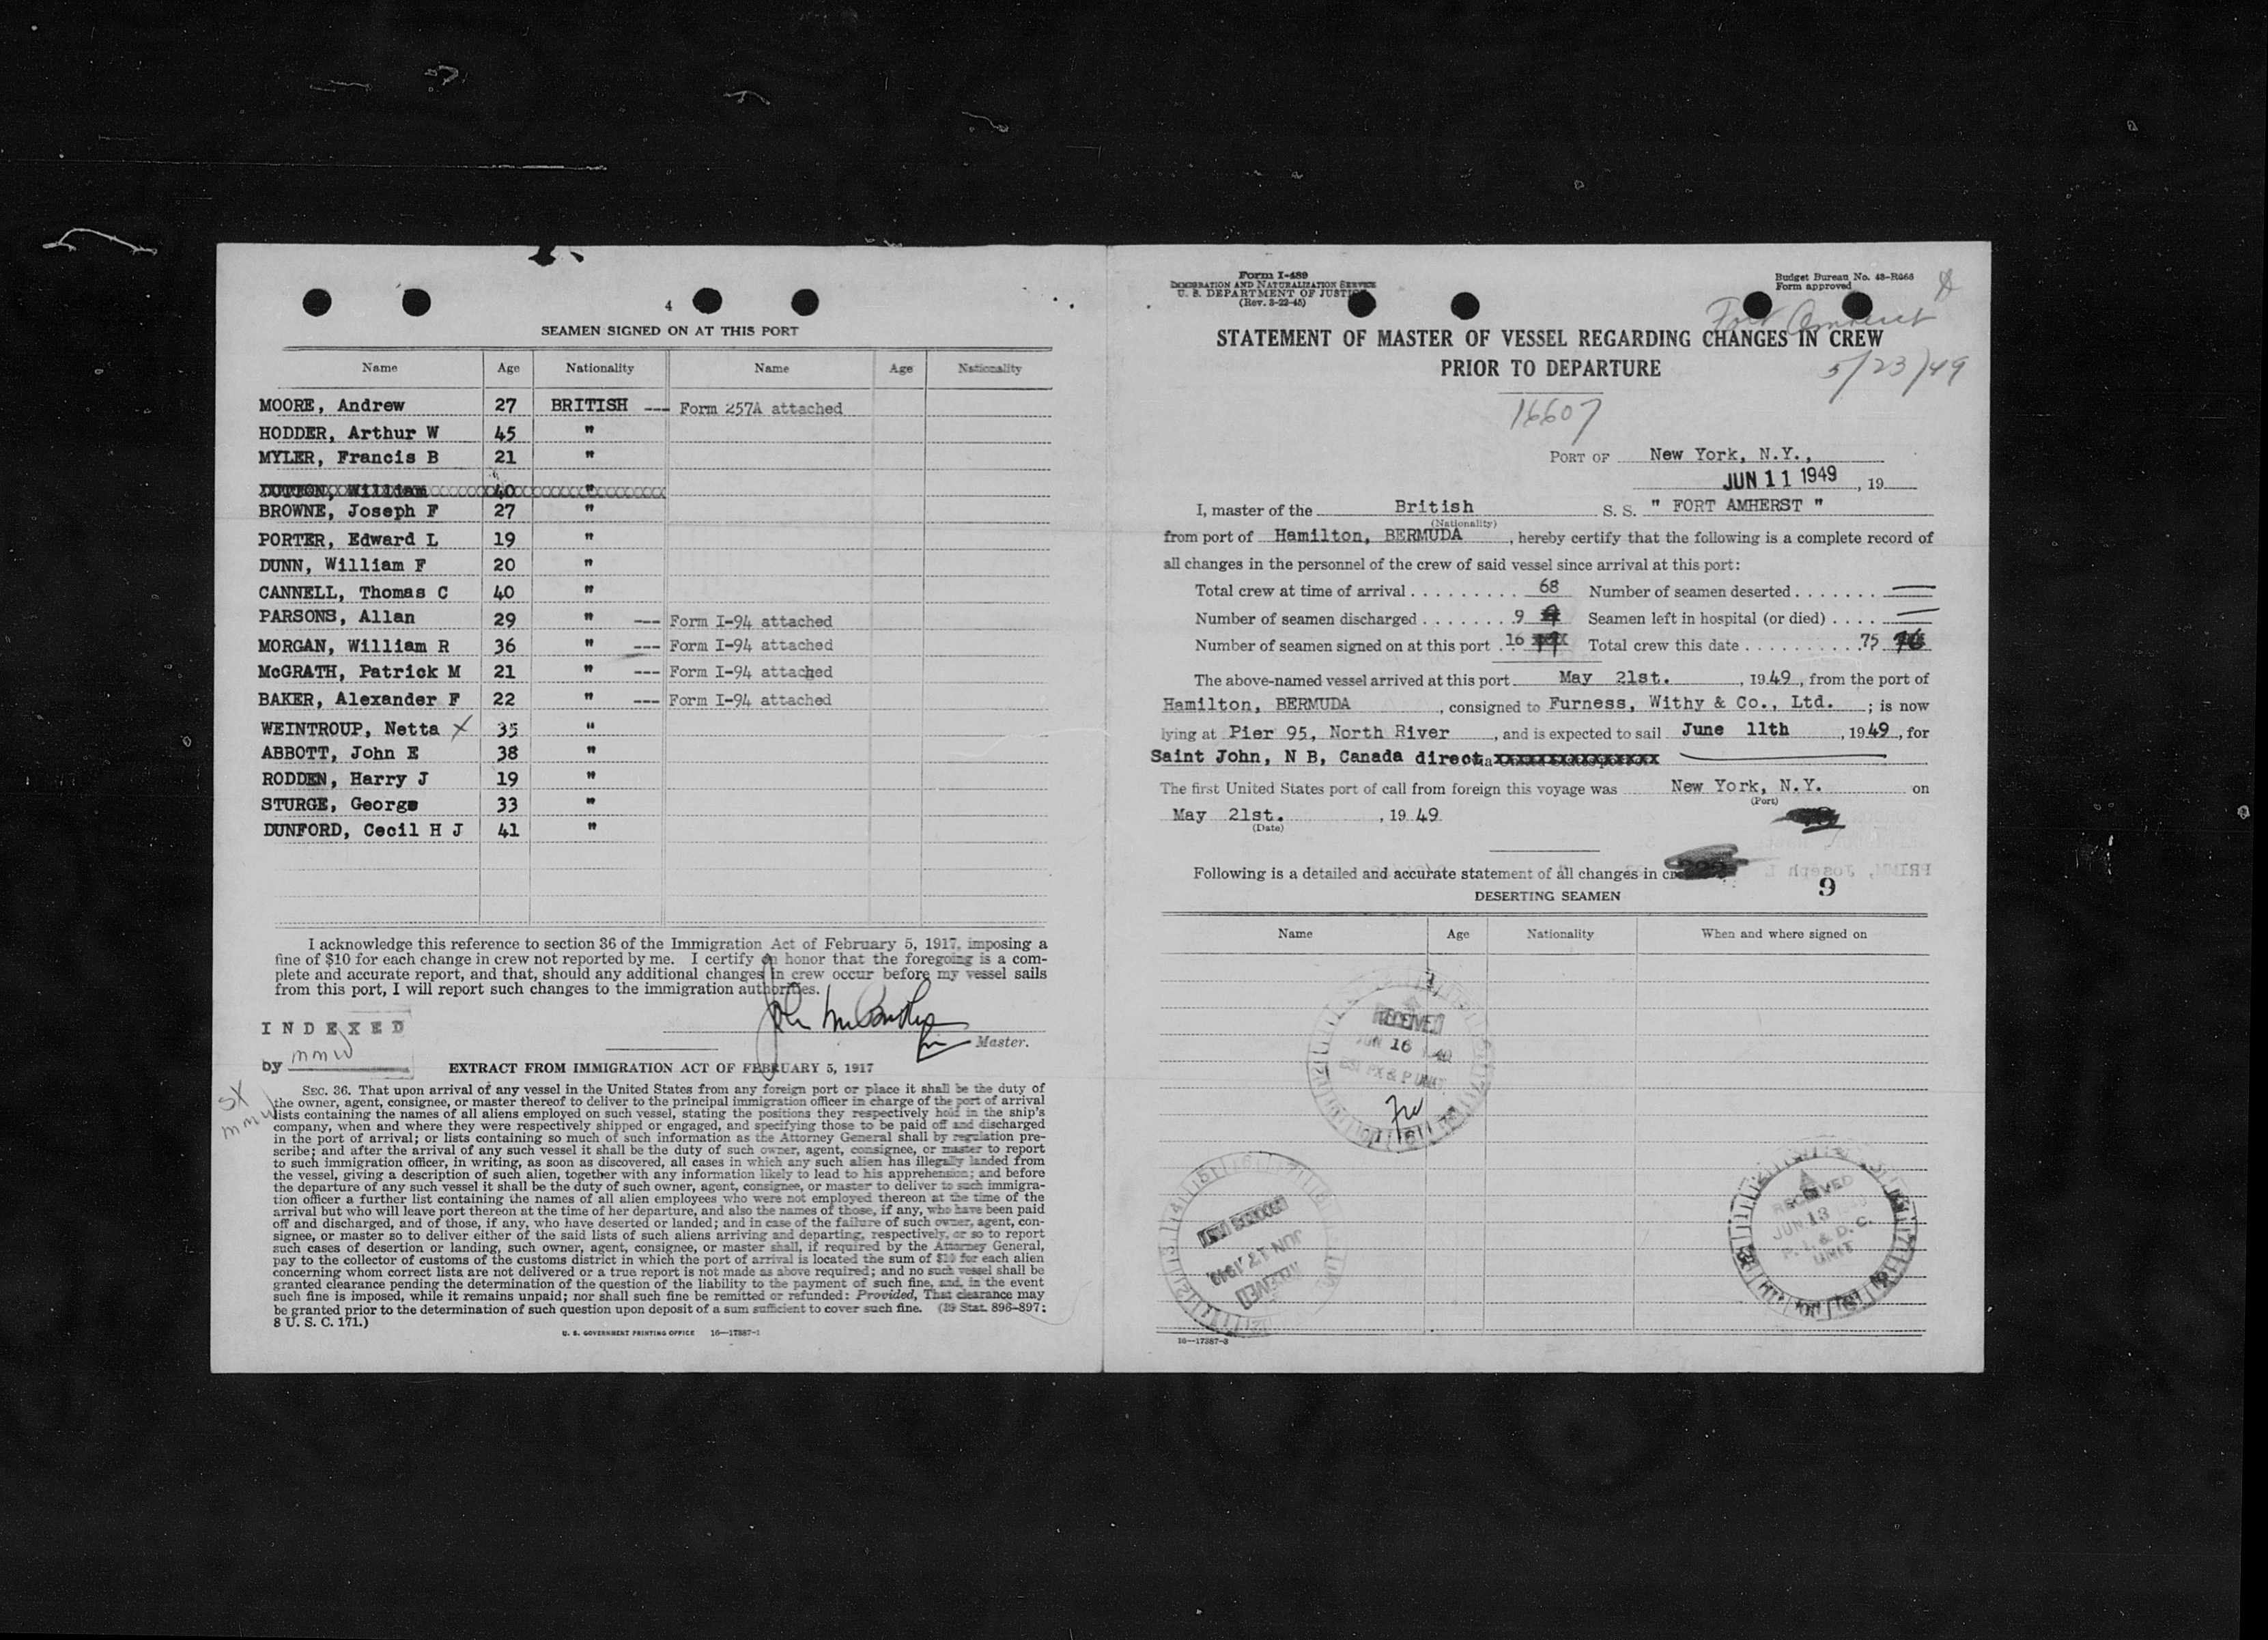 4
SEAMEN SIGNED ON AT THIS PORT
Name Age Nationality Name Age Nationality
MOORE, Andrew 27 BRITISH --- Form 257A attached
HODDER, Arthur W 45 "
MYLER, Francis B 21 "
DUTTON, William 40 "
BROWNE, Joseph F 27 "
PORTER, Edward L 19 "
DUNN, William F 20 "
CANNELL, Thomas C 40 "
PARSONS, Allan 29 " --- Form I-94 attached
MORGAN, William R 36 " --- Form I-94 attached
McGRATH, Patrick M 21 " --- Form I-94 attached
BAKER, Alexander F 22 " --- Form I-94 attached
WEINTROUP, Netta X 35 "
ABBOTT, John E 38 "
RODDEN, Harry J 19 "
STURGE, George 33 "
DUNFORD, Cecil H J 41 "
I acknowledge this reference to section 36 of the Immigration Act of February 5, 1917, imposing a
fine of $10 for each change in crew not reported by me. I certify on honor that the foregoing is a com-
plete and accurate report, and that, should any additional changes in crew occur before my vessel sails
from this port, I will report such changes to the immigration authorities.
INDEXED
by mmw
Master.
EXTRACT FROM IMMIGRATION ACT OF FEBRUARY 5, 1917
SX
mmw
SEC. 36. That upon arrival of any vessel in the United States from any foreign port or place it shall be the duty of
the owner, agent, consignee, or master thereof to deliver to the principal immigration officer in charge of the port of arrival
lists containing the names of all aliens employed on such vessel, stating the positions they respectively hold in the ship's
company, when and where they were respectively shipped or engaged, and specifying those to be paid off and discharged
in the port of arrival; or lists containing so much of such information as the Attorney General shall by regulation pre-
scribe; and after the arrival of any such vessel it shall be the duty of such owner, agent, consignee, or master to report
to such immigration officer, in writing, as soon as discovered, all cases in which any such alien has illegally landed from
the vessel, giving a description of such alien, together with any information likely to lead to his apprehension; and before
the departure of any such vessel it shall be the duty of such owner, agent, consignee, or master to deliver to such immigra-
tion officer a further list containing the names of all alien employees who were not employed thereon at the time of the
arrival but who will leave port thereon at the time of her departure, and also the names of those, if any, who have been paid
off and discharged, and of those, if any, who have deserted or landed; and in case of the failure of such owner, agent, con-
signee, or master so to deliver either of the said lists of such aliens arriving and departing, respectively, or so to report
such cases of desertion or landing, such owner, agent, consignee, or master shall, if required by the Attorney General,
pay to the collector of customs of the customs district in which the port of arrival is located the sum of $10 for each alien
concerning whom correct lists are not delivered or a true report is not made as above required; and no such vessel shall be
granted clearance pending the determination of the question of the liability to the payment of such fine, and, in the event
such fine is imposed, while it remains unpaid; nor shall such fine be remitted or refunded: Provided, That clearance may
be granted prior to the determination of such question upon deposit of a sum sufficient to cover such fine. (39 Stat. 896-897;
8 U. S. C. 171.)
U. S. GOVERNMENT PRINTING OFFICE 16—17387-1
Form I-489
IMMIGRATION AND NATURALIZATION SERVICE
U. S. DEPARTMENT OF JUSTICE
(Rev. 3-22-45)
Budget Bureau No. 43-R066
Form approved
Fort Amherst
STATEMENT OF MASTER OF VESSEL REGARDING CHANGES IN CREW
PRIOR TO DEPARTURE
5/23/49
16607
PORT OF New York, N.Y.,
JUN 11 1949, 19
I, master of the British S. S. " FORT AMHERST "
(Nationality)
from port of Hamilton, BERMUDA, hereby certify that the following is a complete record of
all changes in the personnel of the crew of said vessel since arrival at this port:
Total crew at time of arrival . . . . . . . . . . 68 Number of seamen deserted . . . . . . . —
Number of seamen discharged . . . . . . . . 9 Seamen left in hospital (or died) . . . . —
Number of seamen signed on at this port . . 16 Total crew this date . . . . . . . . . . . 75 76
The above-named vessel arrived at this port May 21st., 1949, from the port of
Hamilton, BERMUDA, consigned to Furness, Withy & Co., Ltd. ; is now
lying at Pier 95, North River, and is expected to sail June 11th, 1949, for
Saint John, N B, Canada direct
The first United States port of call from foreign this voyage was New York, N.Y. on
(Port)
May 21st., 1949
(Date)
Following is a detailed and accurate statement of all changes in
9
DESERTING SEAMEN
Name Age Nationality When and where signed on
RECEIVED
JUN 16
RECEIVED
JUN 13
P. I. & D. C.
UNIT
JUN 13 1949
RECEIVED
16—17387-3